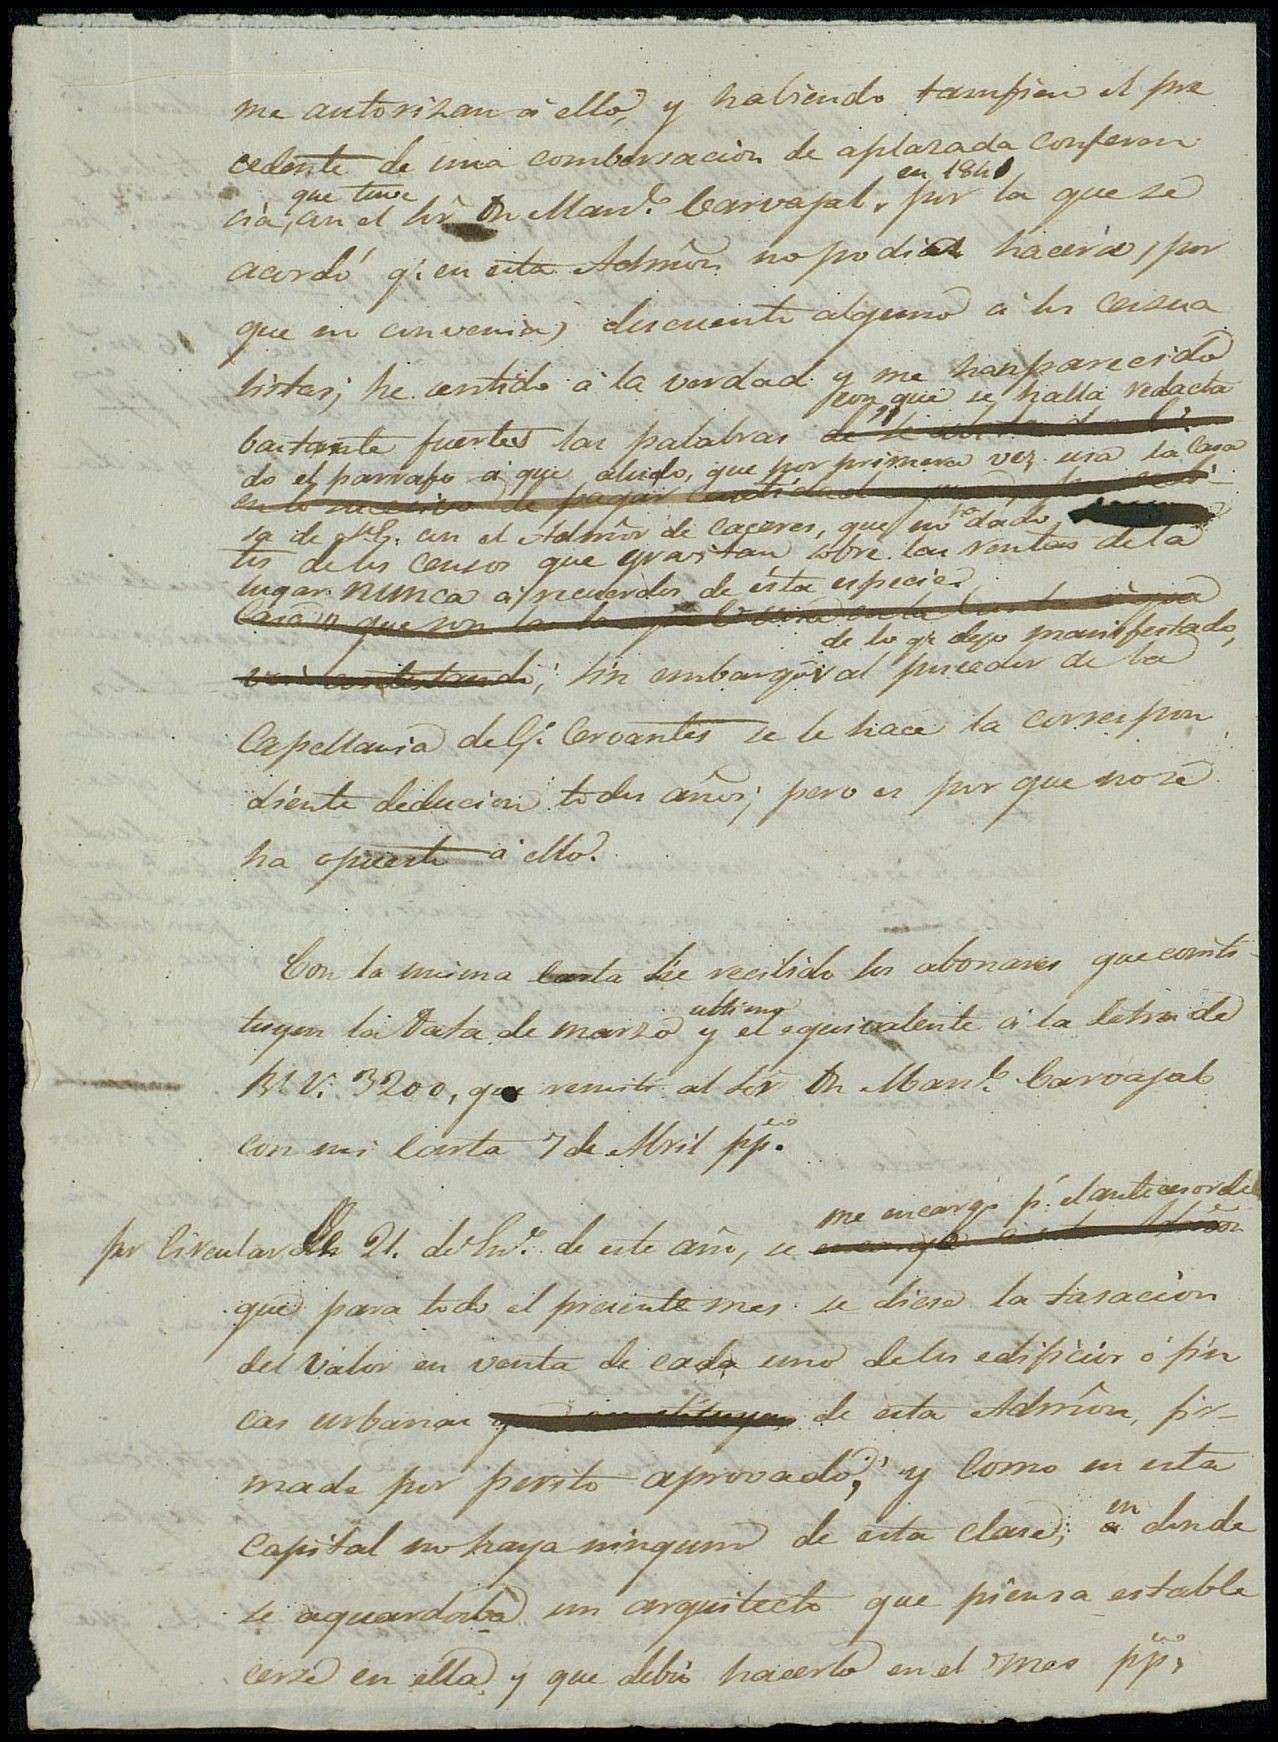 me autorizan á ello, y habiendo tambien el pre
cedente de una combersacion de aplazada conferen
que tuve en 1841
cia, con el Sr. Dn Manl. Carvajal, por la que se
acordó q. en esta Admôn no podia hacerse, por
que no convenia, descuento alguno á los censua
listas; he sentido á la verdad y me han parecido
con que se halla redacta
bastante fuertes las palabras de
do el parrafo á que aludo, que por primera vez usa la Casa
en lo sucesivo de pagar
sa de V.E. con el Admôr de Caceres, que no ha dado
tes de los censos que gravitan sobre las rentas de la
lugar nunca á recuerdos de ésta especie.
Casa, que son las
de lo q. dejo manifestado,
; sin embargo al poseedor de la
Capellania de G. Cervantes se le hace la correspon
diente deducion todos años; pero es por que no se
ha opuesto á ello.
Con la misma carta he recibido los abonares que consti-
ultimo
tuyen la Data de marzo y el equivalente á la letra de
Rl V. 3200, que remiti al Sor Dn Manl. Carvajal
con mi carta 7 de Abril pp.do
me encargó pr. el antecesor de
por Circular de 21. de En.o de este año, se
que para todo el presente mes se diese la tasacion
del valor en venta de cada uno de los edificios ó fin
cas urbanas que constituyen de esta Admôn, fir-
mada por perito aprovado; y como en esta
en
capital no haya ninguno de esta clase, á donde
se aguardaba un arquitecto que piensa estable
cerse en ella y que debió hacerlo en el mes pp.do